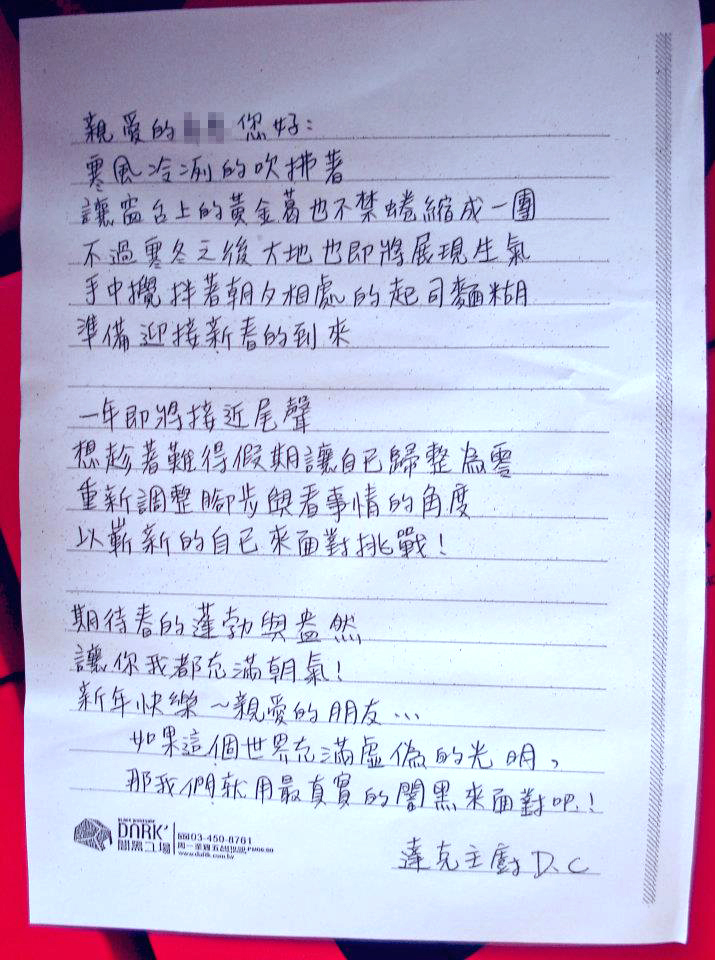 親愛的 您好:
寒風冷冽的吹拂著
讓窗台上的黃金葛也不禁蜷縮成一團
不過寒冬之後大地也即將展現生氣
手中攪拌著朝夕相處的起司麵糊
準備迎接新春的到來
一年即將接近尾聲
想趁著難得假期讓自己歸整為零
重新調整腳步與看事情的角度
以嶄新的自己來面對挑戰!
期待春的蓬勃與盎然
讓你我都充滿朝氣!
新年快樂~親愛的朋友...
如果這個世界充滿虛偽的光明,
那我們就用最真實的闇黑來面對吧!
DARK'
闇黑工場
03-450-8761
周一至週五
www.dark.com.tw
達克主廚 D.C